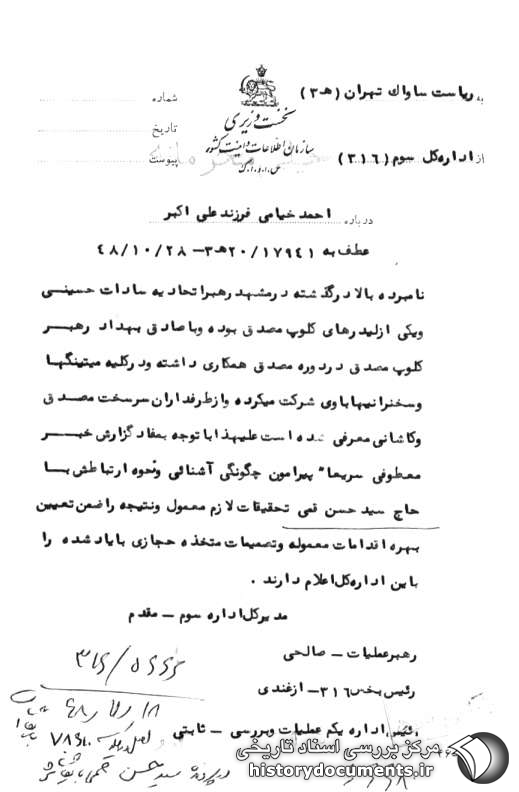 به ریاست ساواک تهران (ه‍ ۳)
از اداره کل سوم (۳۱۶)
شماره
تاریخ
پیوست
نخست وزیری
سازمان اطلاعات و امنیت کشور
س.ا.و.ا.ک
درباره احمد خیامی فرزند علی اکبر
عطف به ۲۰/۱۷۹۴۱ه‍ ۳ – ۴۸/۱۰/۲۸
نامبرده بالا در گذشته در مشهد رهبر اتحادیه سادات حسینی
ویکی از لیدرهای کلوپ مصدق بوده وبا صادق بهداد رهبر
کلوپ مصدق در دوره مصدق همکاری داشته ودر کلیه میتینگها
وسخنرانیها باوی شرکت میکرده واز طرفداران سرسخت مصدق
وکاشانی معرفی شده است علیهذا با توجه بمفاد گزارش خبر
معطوفی سریعا" پیرامون چگونگی آشنائی ونحوه ارتباطش با
حاج سید حسن قمی تحقیقات لازم معمول ونتیجه را ضمن تعیین
بهره اقدامات معموله وتصمیمات متخذه حجازی با یاد شده را
باین اداره کل اعلام دارند .
مدیر کل اداره سوم – مقدم
رهبر عملیات – صالحی
رئیس بخش ۳۱۶ – ازغندی
رئیس اداره یکم عملیات وبررسی – ثابتی
مرکز بررسی اسناد تاریخی
historydocuments.ir